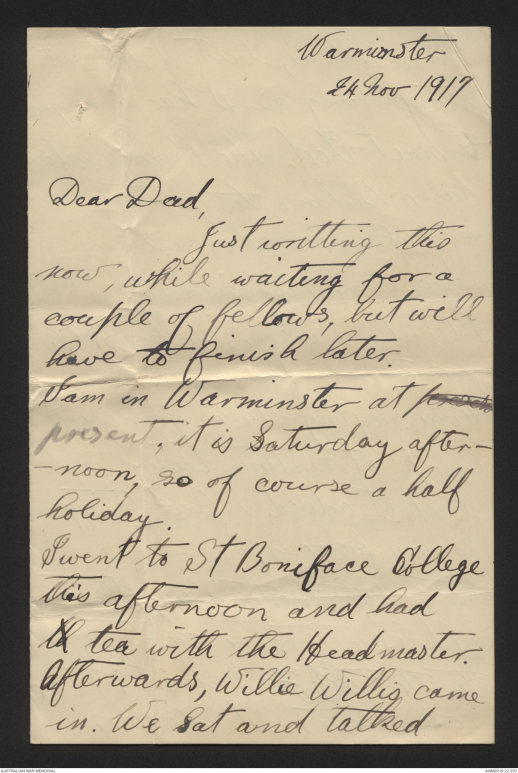 Warminster
24 Nov 1917
Dear Dad,
Just writting this
now, while waiting for a
couple of fellows, but will
have to finish later.
I am in Warminster at presen
present, it is Saturday after-
-noon, so of course a half
holiday.
I went to St Boniface College
this afternoon and had
tea with the Headmaster.
Afterwards, Willie Willis came
in. We sat and talked
AUSTRALIAN WAR MEMORIAL